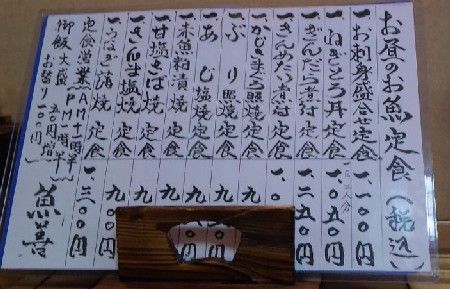 お昼のお魚定食(税込)
一、お刺身盛合せ定食 一、一〇〇円
一、ねぎとろ丼定食 一、〇五〇円
一、ぎんだら煮付定食 一、二五〇円
一、きんめだい煮付定食 一、〇
一、かじきまぐろ照焼定食 九
一、ぶり照焼定食 九
一、あじ塩焼定食 九〇〇円
一、赤魚粕漬焼定食 九〇〇円
一、甘塩さば焼定食 九
一、さんま塩焼定食 九
一、うなぎ蒲焼定食 一、三〇〇円
定食営業AM十一時半
PM一時半
御飯大盛 五〇円増
お替り 一〇〇円
魚善